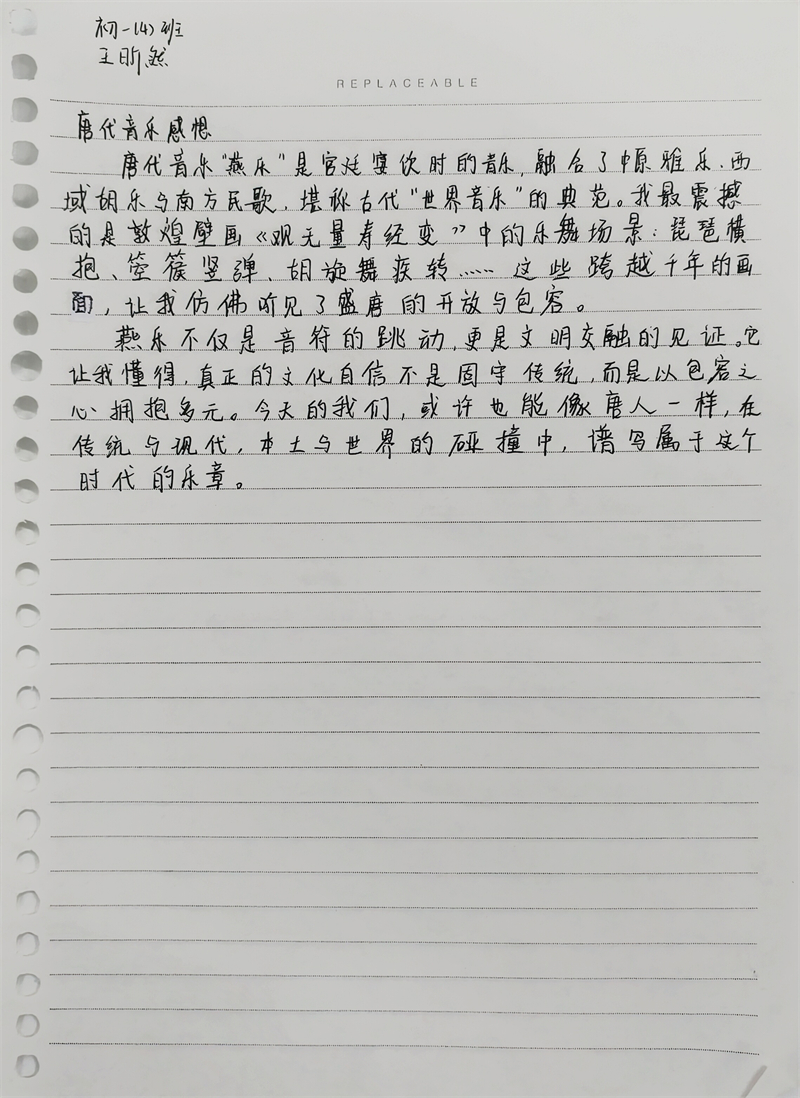 初一(4)班
王昕然
REPLACEABLE
唐代音乐感想
唐代音乐"燕乐"是宫廷宴饮时的音乐，融合了中原雅乐、西
域胡乐与南方民歌，堪称古代"世界音乐"的典范。我最震撼
的是敦煌壁画《观无量寿经变》中的乐舞场景：琵琶横
抱、箜篌竖弹、胡旋舞疾转……这些跨越千年的画
面，让我仿佛听见了盛唐的开放与包容。
燕乐不仅是音符的跳动，更是文明交融的见证。它
让我懂得，真正的文化自信不是固守传统，而是以包容之
心拥抱多元。今天的我们，或许也能像唐人一样，在
传统与现代，本土与世界的碰撞中，谱写属于这个
时代的乐章。